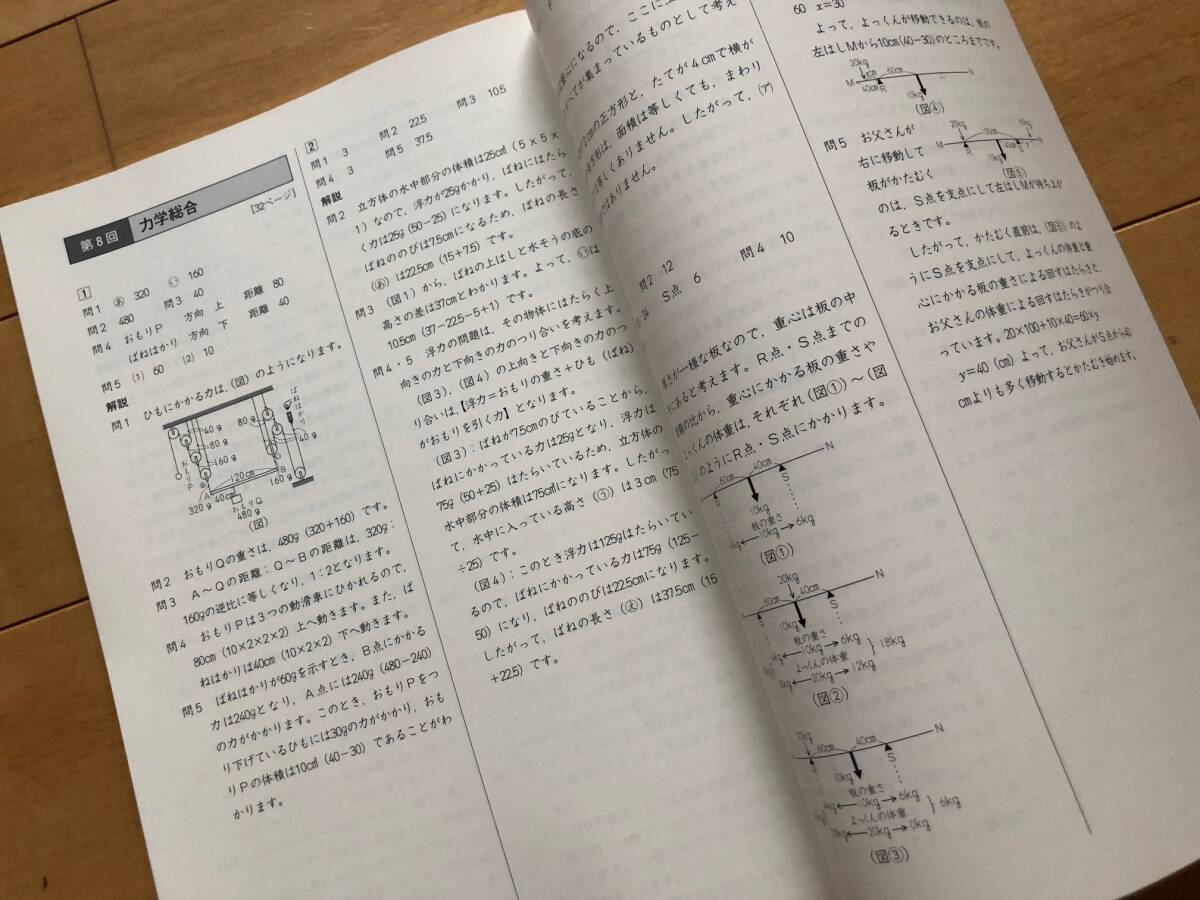 第8回 力学総合
[32ページ]
1
問1 あ 320 い 160
問2 480 問3 40
問4 おもりP 方向 上 距離 80
ばねはかり 方向 下 距離 40
問5 (1) 60 (2) 10
解説
問1 ひもにかかる力は,(図)のようになります。
40g
80g
160g
おもりP
320g
A
40cm
120cm
おもりQ
480g
B
80g
ばねはかり
40g
160g
(図)
問2 おもりQの重さは,480g(320+160)です。
問3 A〜Qの距離:Q〜Bの距離は,320g:
160gの逆比に等しくなり,1:2となります。
問4 おもりPは3つの動滑車にひかれるので,
80cm(10×2×2×2)上へ動きます。また,ば
ねはかりは40cm(10×2×2)下へ動きます。
問5 ばねはかりが60gを示すとき,B点にかかる
力は240gとなり,A点には240g(480−240)
の力がかかります。このとき,おもりPをつ
り下げているひもには30gの力がかかり,おも
りPの体積は10㎤(40−30)であることがわ
かります。
2
問1 3 問2 22.5 問3 10.5
問4 3 問5 37.5
解説
問2 立方体の水中部分の体積は25㎤(5×5×
1)なので,浮力が25gかかり,ばねにはたら
く力は25g(50−25)になります。したがって,
ばねののびは7.5cmになるため,ばねの長さ
(あ)は22.5cm(15+7.5)です。
問3 (図1)から,ばねの上はしと水そうの底の
高さの差は37cmとわかります。よって,(い)は
10.5cm(37−22.5−5+1)です。
問4・5 浮力の問題は,その物体にはたらく上
向きの力と下向きの力のつり合いを考えます。
(図3),(図4)の上向きと下向きの力のつ
り合いは,【浮力=おもりの重さ+ひも(ばね)
がおもりを引く力】となります。
(図3):ばねが7.5cmのびていることから,
ばねにかかっている力は25gとなり,浮力は
75g(50+25)はたらいているため,立方体の
水中部分の体積は75㎤になります。したがっ
て,水中に入っている高さ(う)は3cm(75
÷25)です。
(図4):このとき浮力は125gはたらいてい
るので,ばねにかかっている力は75g(125−
50)になり,ばねののびは22.5cmになります。
したがって,ばねの長さ(え)は37.5cm(15
+22.5)です。
重心になるので,ここに上
べてが集まっているものとして考え
2cmの正方形と,たてが4cmで横が
方形は,面積は等しくても,まわり
等しくありません。したがって,(ア)
はありません。
問2 12
S点 6 問4 10
24
さが一様な板なので,重心は板の中
にあると考えます。R点・S点までの
の比から,重心にかかる板の重さや
っくんの体重は,それぞれ(図①)〜(図
)のようにR点・S点にかかります。
60cm 40cm N
R S
10kg
板の重さ
4kg←10kg→6kg
(図①)
20kg 40cm N
60cm S
R
10kg
板の重さ
4kg←10kg→6kg
よっくんの体重
8kg←20kg→12kg
18kg
(図②)
20kg 60cm 40cm N
R S
10kg
板の重さ
4kg←10kg→6kg
よっくんの体重
20kg←20kg→0kg
6kg
(図③)
60 x=30
よって,よっくんが移動できるのは,板の
左はしMから10cm(40−30)のところまでです。
20kg 60cm
M N
40cm R
10kg
(図④)
問5 お父さんが
右に移動して
板がかたむく
のは,S点を支点にして左はしMが持ち上が
るときです。
20kg 60kg
M N
R
10kg
(図⑤)
したがって,かたむく直前は,(図⑤)のよ
うにS点を支点にして,よっくんの体重と重
心にかかる板の重さによる回すはたらきと,
お父さんの体重による回すはたらきがつり合
っています。20×100+10×40=60×y
y=40(cm)よって,お父さんがS点から40
cmよりも多く移動するとかたむき始めます。